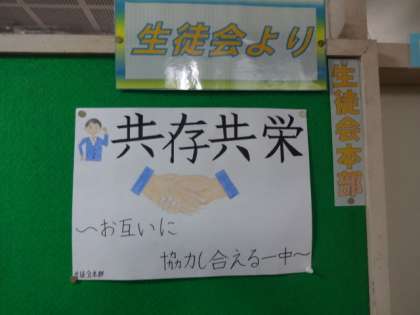 生徒会より
生徒会本部
共存共栄
〜お互いに
協力し合える一中〜
生徒会本部